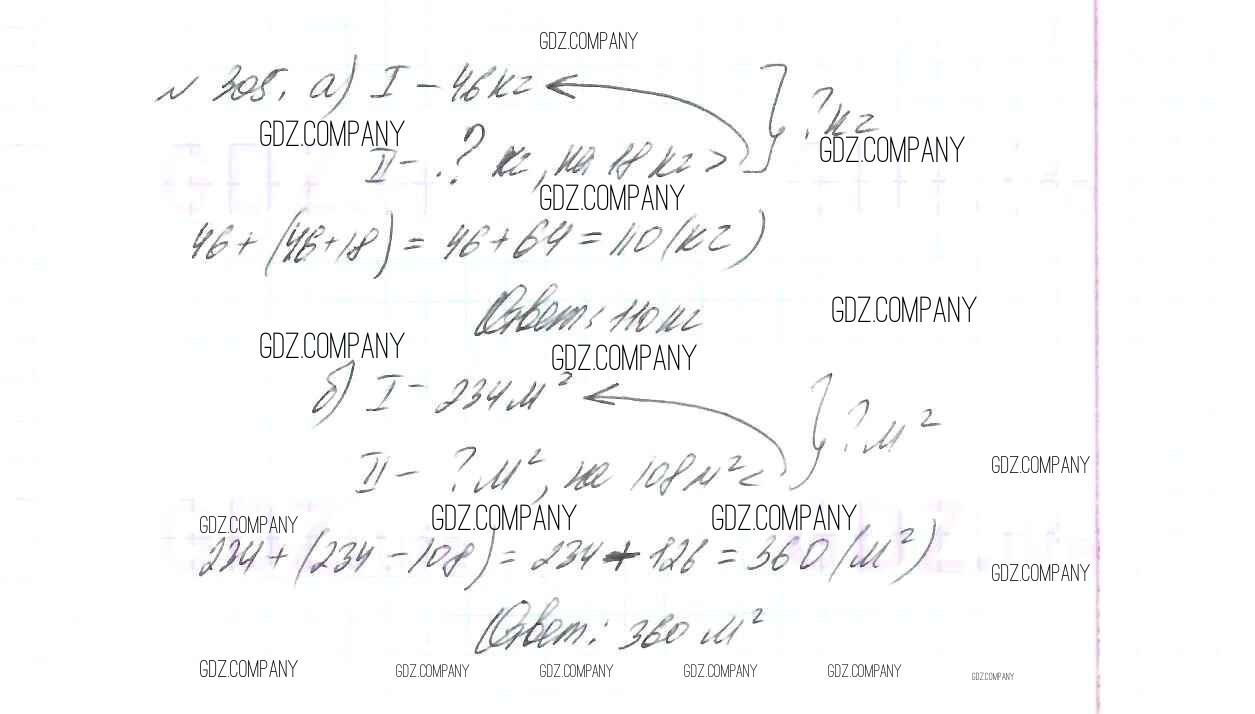 GDZ.COMPANY
№ 305. а) I – 46кг
?кг
GDZ.COMPANY
GDZ.COMPANY
II – ? кг, на 18 кг >
GDZ.COMPANY
46 + (46+18) = 46 + 64 = 110 (кг)
Ответ: 110 кг
GDZ.COMPANY
GDZ.COMPANY
GDZ.COMPANY
б) I – 234 м²
? м²
II – ? м², на 108 м² <
GDZ.COMPANY
GDZ.COMPANY
GDZ.COMPANY
GDZ.COMPANY
234 + (234 – 108) = 234 + 126 = 360 (м²)
GDZ.COMPANY
Ответ: 360 м²
GDZ.COMPANY
GDZ.COMPANY
GDZ.COMPANY
GDZ.COMPANY
GDZ.COMPANY
GDZ.COMPANY